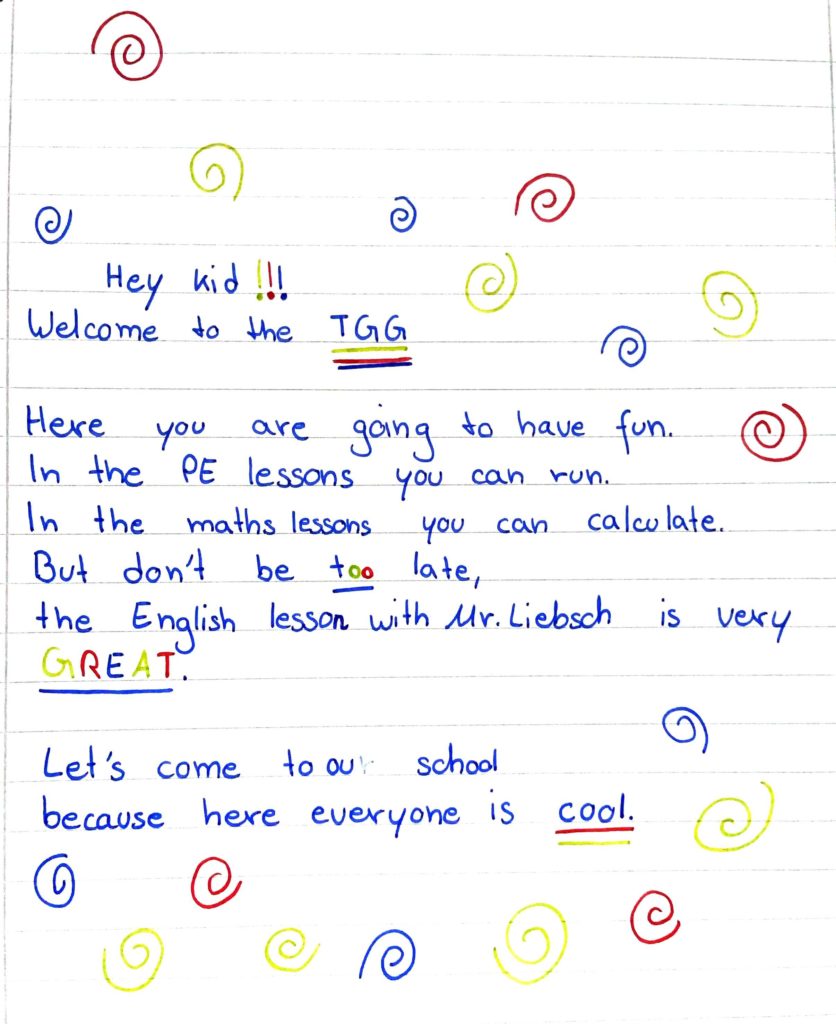 Hey kid!!!
Welcome to the TGG
Here you are going to have fun.
In the PE lessons you can run.
In the maths lessons you can calculate.
But don't be too late,
the English lesson with Mr. Liebsch is very
GREAT.
Let's come to our school
because here everyone is cool.